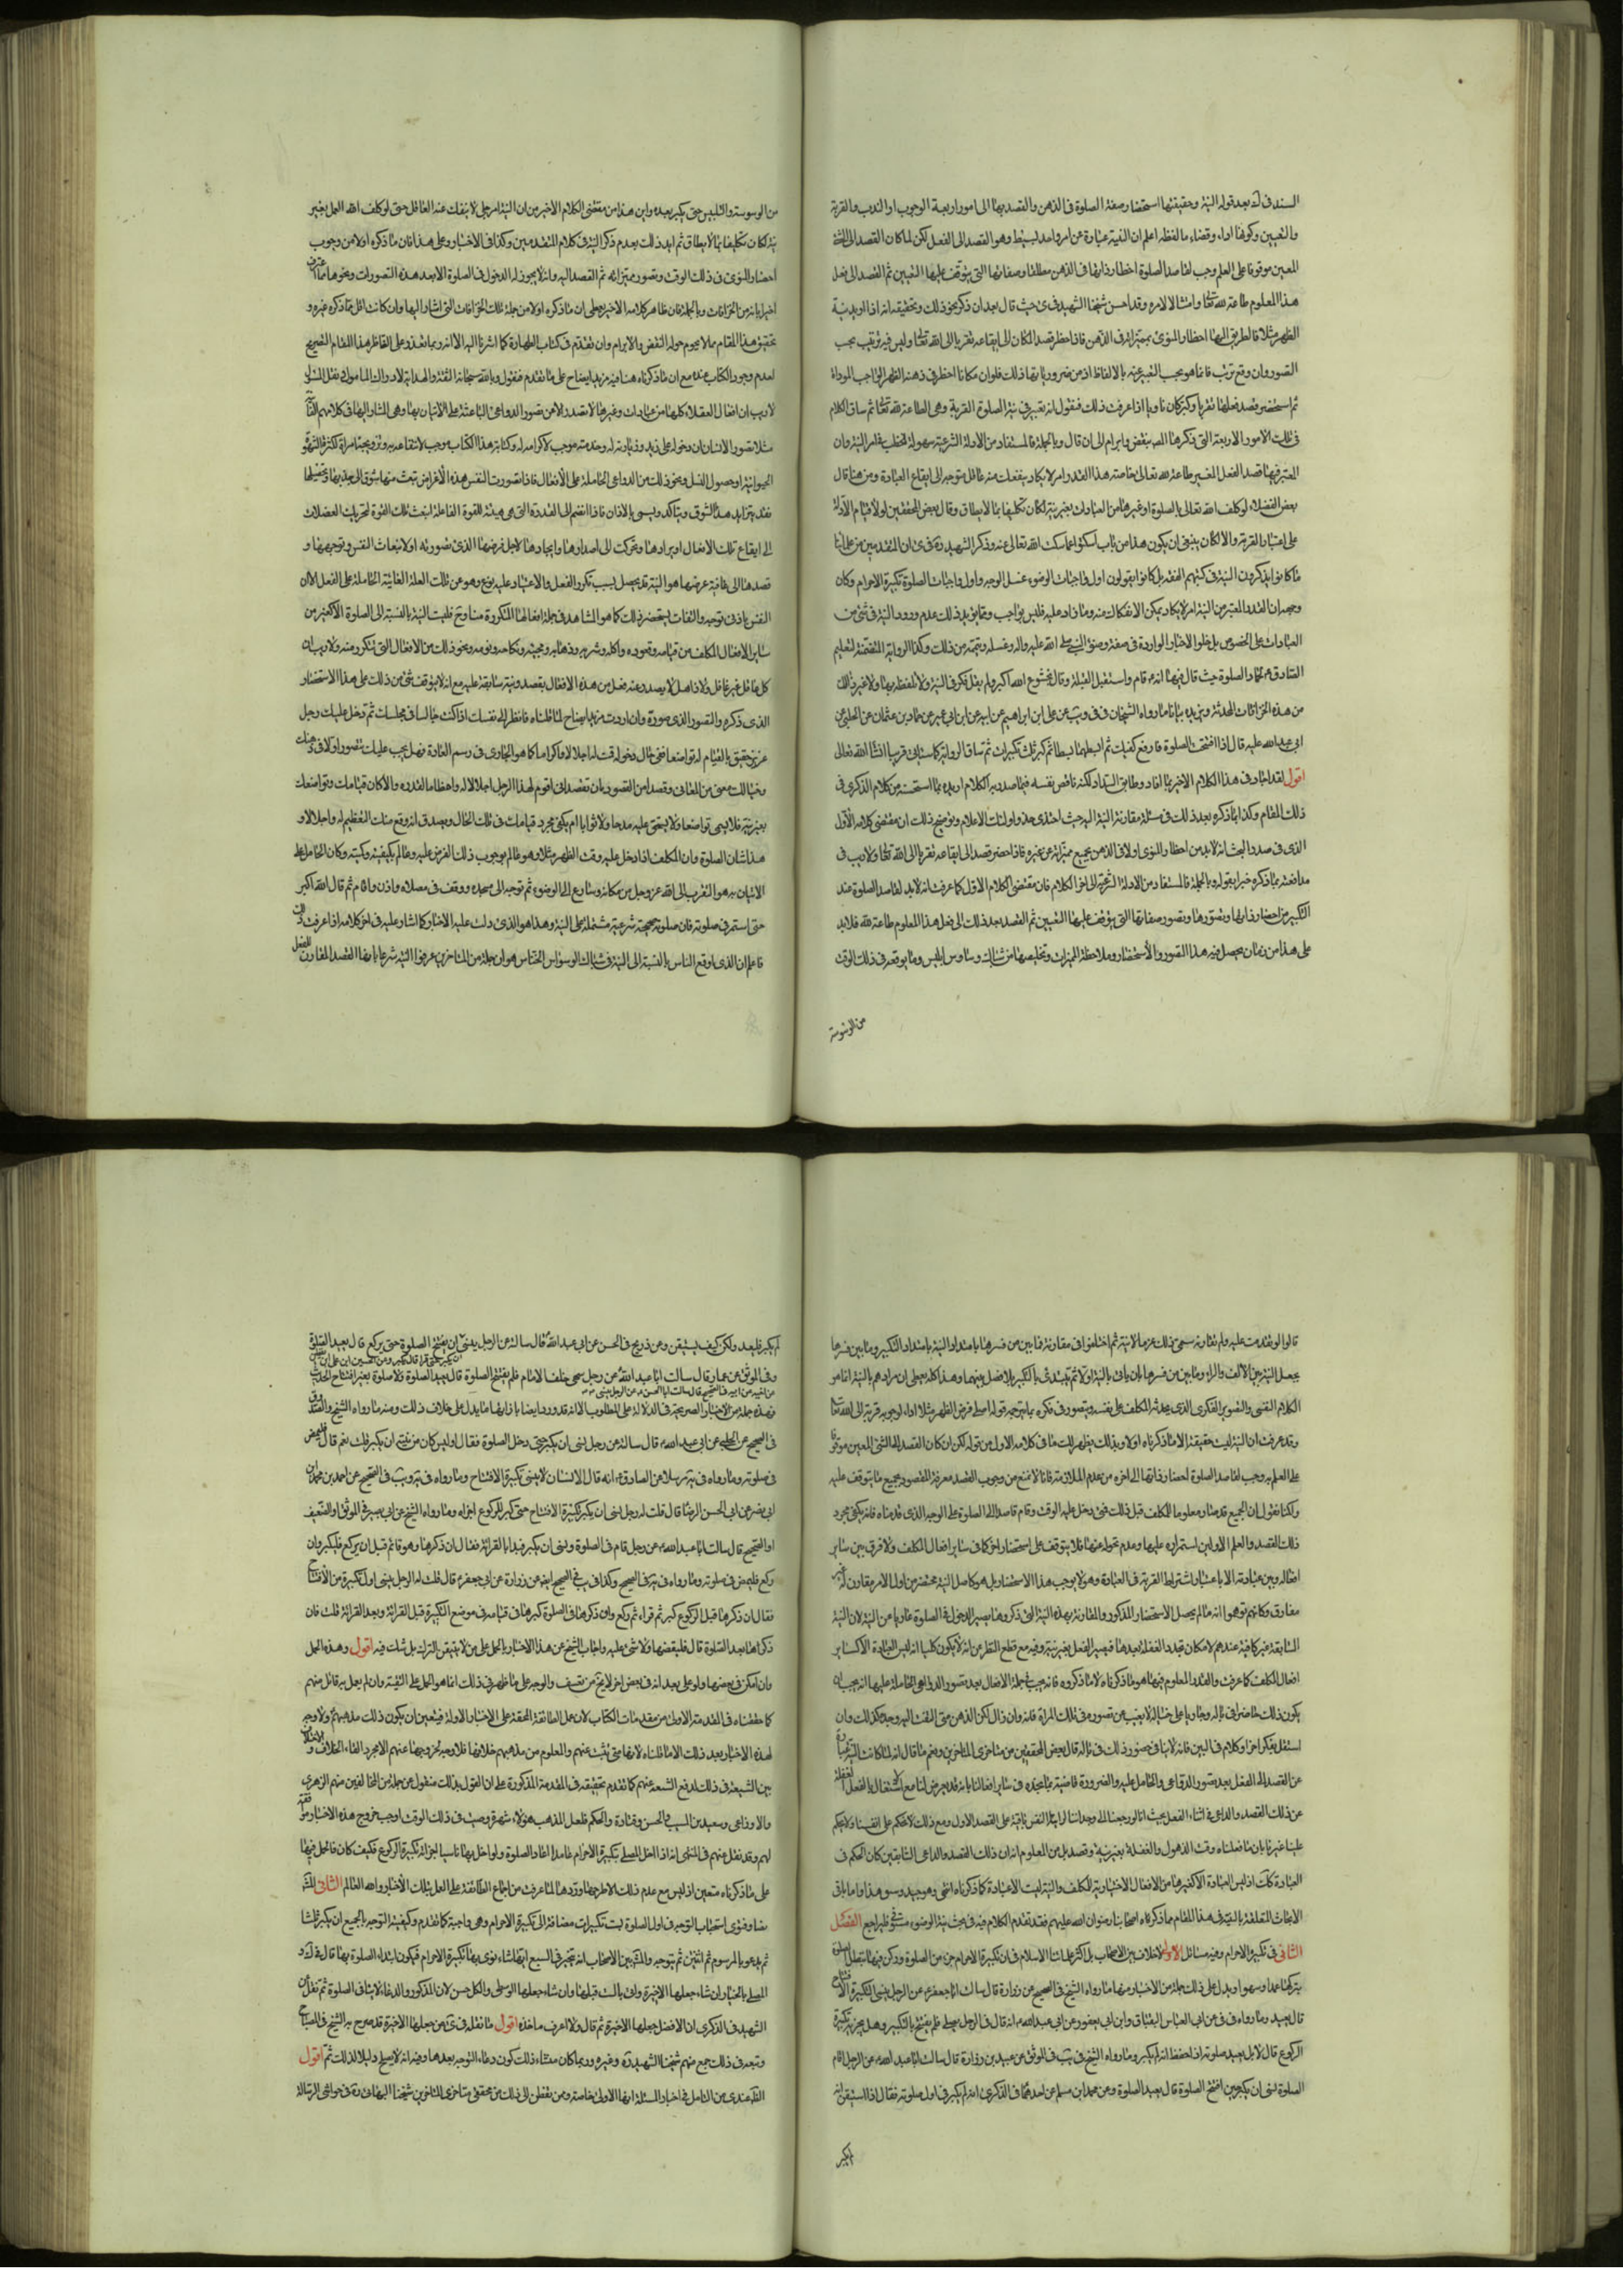 السند في ك بعد قوله النية وحقيقتها استحضار صفة الصلوة في الذهن والقصد بها الى امور اربعة الوجوب او الندب والقربة
والتعيين وكونها اداء وقضاء ما لفظه اعلم ان النية عبارة عن امر واحد بسيط وهو القصد الى الفعل لكن لما كان القصد الى الشئ
المعين موقوفا على العلم وجب لقاصد الصلوة احضار ذاتها في الذهن مطلقا وصفاتها التي يتوقف عليها التعيين ثم القصد الى فعل
هذا المعلوم طاعة لله تعالى وامتثالا لامره وقد احسن شيخنا الشهيد في حيث قال بعد ان ذكر نحو ذلك وتحقيقه انه اذا اريد نية
الظهر مثلا فالطريق اليها احضار المنوي بمميزاته في الذهن فاذا حضر قصد المكان الى ايقاعه تقربا الى الله تعالى وليس فيه ترتيب بحب
التصور وان وقع ترتيب فانما هو بحسب التعبير عنه بالالفاظ اذ من ضرورياتها ذلك فلو ان مكلفا احضر في ذهنه الظهر الواجب المؤداة
ثم استحضر قصد فعلها تقربا وكبر كان ناويا اذا عرفت ذلك فنقول انه تعتبر في نية الصلوة القربة وهي الطاعة لله تعالى ثم ساق الكلام
في تلك الامور الاربعة التي ذكرها المص بنقض وابرام الى ان قال وبالجملة فالمستفاد من الادلة الشرعية سهولة الخطب في امر النية وان
المعتبر فيها قصد الفعل المعين طاعة لله تعالى خاصة وهذا القدر امر لا يكاد ينفك منه عاقل متوجه الى ايقاع العبادة ومن هنا قال
بعض الفضلاء لو كلف الله تعالى بالصلوة او غيرها من العبادات بغير نية لكان تكليفا بما لا يطاق وقال بعض المحققين لولا قيام الادلة
على اعتبار القربة والا لكان ينبغي ان يكون هذا من باب اسكتوا عما سكت الله تعالى عنه وذكر الشهيد ره في ى ان المتقدمين من علمائنا
ما كانوا يذكرون النية في كتبهم الفقهية بل كانوا يقولون اول واجبات الوضوء غسل الوجه واول واجبات الصلوة تكبيرة الاحرام وكان
وجهه ان القدر المعتبر من النية امر لا يكاد يمكن الانفكاك عنه وما زاد عليه فليس بواجب ومما يؤيد ذلك عدم ورود النية في شئ من
العبادات على الخصوص بل خلو الاخبار الواردة في صفة وضوء النبي صلى الله عليه واله وغسله وتيممه من ذلك وكذا الرواية المتضمنة لتعليم
الصادق ع حمادا الصلوة حيث قال فيها انه ع قام واستقبل القبلة وقال بخشوع الله اكبر ولم يقل فكر في النية ولا تلفظ بها ولا غير ذلك
من هذه الخرافات المحدثة ويزيده بيانا ما رواه الشيخان في في ويب عن علي ابن ابراهيم عن ابيه عن ابن ابي عمير عن حماد بن عثمان عن الحلبي عن
ابي عبد الله عليه قال اذا افتتحت الصلوة فارفع كفيك ثم ابسطهما بسطا ثم كبر ثلث تكبيرات ثم ساق الرواية كما ستاتي قريبا انشا الله تعالى
اقول لقد اجاد في هذا الكلام الاخير بما افاد وطابق السداد لكنه ناقض نفسه فيما صدر به الكلام او ايده مما استحسنه من كلام الذكرى في
ذلك المقام وكذا ما ذكره بعد ذلك في مسئلة مقارنة النية اليه حيث احتذى حذو اولئك الاعلام وتوضيح ذلك ان مقتضى كلامه الاول
الذي في صدر البحث انه لابد من احضار المنوي اولا في الذهن بجميع مميزاته عن غيره فاذا احضر قصد الى ايقاعه تقربا الى الله تعالى ولا ريب في
مدافعته لما ذكره خيرا بقوله وبالجملة فالمستفاد من الادلة الشرعية الى اخر الكلام فان مقتضى الكلام الاول كما عرفت انه لابد لقاصد الصلوة عند
التكبير من احضار ذاتها وتصورها وتصور صفاتها التي يتوقف عليها التعيين ثم القصد بعد ذلك الى فعل هذا المعلوم طاعة لله فلابد
على هذا من زمان يحصل فيه هذا التصور والاستحضار وملاحظة المميزات وتخليصها من شبابيك وساوس ابليس وما يوقعه في ذلك الوقت
من الوسوسة
من الوسوسة والتلبيس حتى يكبر بعده واين هذا من مقتضى الكلام الاخير من ان النية امر جلي لا ينفك عنه العاقل حتى لو كلف الله العمل بغير
نية لكان تكليفا بما لا يطاق ثم ايد ذلك بعدم ذكر النية في كلام المتقدمين وكذا في الاخبار وعلى هذا فان ما ذكره اولا من وجوب
احضار المنوي في ذلك الوقت وتصور مميزاته ثم القصد اليه وانه لا يجوز له الدخول في الصلوة الا بعد هذه التصورات ونحوها مما اعترف
اخيرا بانه من الخرافات وبالجملة فان ظاهر كلامه الاخير يعطي ان ما ذكره اولا من جملة تلك الخرافات التي اشار اليها وان كانت اقل مما ذكره غيره و
تحقيق هذا المقام مما لا يحوم حوله النقض والابرام وان تقدم في كتاب الطهارة كما اشرنا اليه الا انه ربما تعذر على الناظر هذا المقام الفسيح
لعدم وجود الكتاب عنده مع ان ما ذكرناه هنا فيه مزيد ايضاح على ما تقدم فنقول وبالله سبحانه الثقة والهداية لادراك المامول ونيل المسئول
لا ريب ان افعال العقلاء كلها من عبادات وغيرها لا تصدر الا من تصور الدواعي الباعثة على الاتيان بها وهي المشار اليها في كلامهم
مثلا تصور الانسان ان دخوله على زيد وزيارته له وخدمته موجب لاكرامه له وكتابة هذا الكتاب موجب لانتفاعه به وتزويجه بامراة
الحيوانية او حصول النسل ونحو ذلك من الدواعي الحاملة على الافعال فاذا تصورت النفس هذه الاغراض تبعث منها شوق الى جذبها وتحصيلها
فقد يتزايد هذا الشوق ويتاكد ويسمى بالاذان فاذا انضم الى القدرة التي هي هيئة للقوة الفاعلة انبعث تلك القوة لتحريك العضلات
الى ايقاع تلك الافعال او ايرادها وتحركت الى اصدارها وايجادها لاجل غرضها الذي تصورته اولا فانبعاث النفس وتوجهها و
قصدها الى ما فيه غرضها هو النية قد يحصل بسبب تكرر الفعل والاعتياد عليه نوع ذهول عن تلك العلة الغائية الحاملة على الفعل الا ان
النفس بادنى توجه والتفات يستحضر ذلك كما هو المشاهد في جملة افعالنا المتكررة منا وح فليست النية بالنسبة الى الصلوة الا كغيرها من
سائر الافعال المكلف من قيامه وقعوده واكله وشربه وذهابه ومجيئه ونكاحه ونومه ونحو ذلك من الافعال التي تتكرر منه ولا ريب ان
كل عاقل غير غافل ولا ذاهل لا يصدر عنه فعل من هذه الافعال بقصد ونية سابقة عليه مع انه لا يتوقف شئ من ذلك على هذا الاستحضار
الذي ذكره والتصور الذي صوره وان اردت مزيد ايضاح لما قلناه فانظر الى نفسك اذا كنت جالسا في مجلسك ثم دخل عليك رجل
عزيز حقيق بالقيام له تواضعا ففي حال دخوله قمت له اجلالا واكراما كما هو الجاري في رسم العادة فهل يجب عليك تصور اولا في ذهنك
وخيالك معنى من المعاني وقصدا من القصود بان تقصد اني اقوم لهذا الرجل اجلالا له واعظاما لقدره والا لكان قيامك وتواضعك
بغير نية فلا يسمى تواضعا ولا يستحق عليه مدحا ولا ثوابا ام يكفي مجرد قيامك في تلك الحال ويصدق انه وقع منك التعظيم له واجلالا و
هذا شان الصلوة وان المكلف اذا دخل عليه وقت الظهر مثلا وهو عالم بوجوب ذلك الفرض عليه وعالم بكيفيته وكميته وكان الحامل على
الاتيان به هو التقرب الى الله عز وجل من مكانه وسارع الى الوضوء ثم توجه الى مسجده ووقف في مصلاه واذن واقام ثم قال الله اكبر
حتى استمر في صلوته فان صلوته صحيحة شرعية مشتملة على النية وهذا هو الذي دلت عليه الاخبار كما اشار عليه في اخر كلامه اذا عرفت ذلك
فاعلم ان الذي اوقع الناس بالنسبة الى النية في شباك الوسواس الخناس هو ان جملة من المتاخرين عرفوا النية شرعا بانها القصد المقارن للفعل
قالوا لو تقدمت عليه ولم تقارنه سمي ذلك عزما لا نية ثم اختلفوا في مقارنة فما بين من فسرها بامتداد النية بامتداد التكبير وما بين فسرها
يجعل النية بين الالف والراء وما بين من فسرها بان يات بالنية اولا ثم يبتدئ بالتكبير بلا فصل بينهما وهذا كله يعطي ان مرادهم بالنية انما هو
الكلام النفسي والتصوير الفكري الذي يحدثه المكلف على نفسه ويتصوره في فكره بما يترجمه قوله اصلي فرض الظهر مثلا اداء لوجوبه قربة الى الله تعالى
وقد عرفت ان النية ليست حقيقة الا ما ذكرناه اولا وبذلك يظهر لك ما في كلامه الاول من قوله لكن ان كان القصد الى الشئ المعين موقوفا
على العلم به وجب لقاصد الصلوة احضار ذاتها الى اخره من عدم الملازمة فانا لا نمنع من وجوب القصد معرفة المقصود بجميع ما يتوقف عليه
ولكنا نقول ان الجميع قد صار معلوما للمكلف قبل ذلك فمتى دخل عليه الوقت وقام قاصدا الى الصلوة على الوجه الذي قدمناه فانه يكفي مجرد
ذلك القصد والعلم الاولين لاستمراره عليها وعدم تحوله عنها فلا يتوقف على استحضار اخر كما في سائر افعال المكلف ولا فرق بين سائر
افعاله وبين عبادته الا باعتبار اشتراط القربة في العبادة وهو لا يوجب هذا الاستحضار بل هو كاصل النية مستحضر من اول الامر مقارن غير
مفارق وكانهم توهموا انه ما لم يحصل الاستحضار المذكور والمقارنة بهذه النية التي ذكروها يصير الدخول في الصلوة عاريا عن النية لان النية
السابقة غير كافية عندهم لامكان تجدد الغفلة بعدها فيصير الفعل بغير نية وفيه مع قطع النظر عن انه لا يكون كليا انه ليس العبادة الا كسائر
افعال المكلف كما عرفت والقدر المعلوم فيها هو ما ذكرناه لا ما ذكروه فانه يجب في جملة الافعال بعد تصور الدواعي الحاملة عليها انه يجب ان
يكون ذلك حاضرا في باله وجاريا على خياله لا يغيب عن تصوره في تلك المراة فانه وان زال لكن الذهن متى التفت اليه وجده كذلك وان
استقل بفكر اخر او كلام في البين فانه لا ينافي حضور ذلك في باله قال بعض المحققين من متاخري المتاخرين ونعم ما قال انه لما كانت النية عبارة
عن القصد الى الفعل بعد تصور الداعي والحامل عليه والضرورة قاضية بما نجده في سائر افعالنا بانه قد يعرض لنا مع الاشتغال بالفعل الغفلة
عن ذلك القصد والداعي في اثناء الفعل بحيث انا لو رجعنا الى وجداننا لراينا النفس باقية على القصد الاول ومع ذلك لا نحكم على انفسنا ولا يحكم
علينا غيرنا بان ما فعلناه وقت الذهول والغفلة بغير نية وقصد بل من المعلوم انه ان ذلك القصد والداعي السابقين كان الحكم في
العبادة كك اذ ليس العبادة الا كغيرها من الافعال الاختيارية للمكلف والنية ليست الا عبارة كما ذكرناه انتهى وهو جيد وسو هذا واما باقي
الابحاث المتعلقة بالنية في هذا المقام مما ذكره اصحابنا رضوان الله عليهم فقد تقدم الكلام فيه في بحث نية الوضوء مستوفى فليراجع الفصل
الثاني في تكبيرة الاحرام وفيه مسائل الاولى لا خلاف بين الاصحاب بل اكثر علماء الاسلام في ان تكبيرة الاحرام جزء من الصلوة وركن فيها تبطل الصلوة
بتركها عمدا وسهوا ويدل على ذلك جملة من الاخبار منها ما رواه الشيخ في الصحيح عن زرارة قال سالت ابا جعفر ع عن الرجل ينسى تكبيرة الافتتاح
قال يعيد وما رواه في في عن ابي العباس البقباق وابن ابي يعفور عن ابي عبد الله ع انه قال في الرجل يصلي فلم يفتتح بالتكبير وهل يجزيه تكبيرة
الركوع قال لا بل يعيد صلوته اذا حفظ انه لم يكبر وما رواه الشيخ في يب في الموثق عن عبيد بن زرارة قال سالت ابا عبد الله ع عن الرجل اقام
الصلوة لنسى ان يكبر حين افتتح الصلوة قال يعيد الصلوة وعن محمد ابن مسلم عن احدهما في الذكرى انه لم يكبر في اول صلوته فقال اذا استيقن انه
لم يكبر
لم يكبر فليعد ولكن كيف يستيقن وعن ذريح في الحسن عن ابي عبد الله قال سالته عن الرجل ينسى ان يفتتح الصلوة حتى يركع قال يعيد الصلوة
وفي الموثق عن عمار وقال سالت ابا عبد الله عن رجل سهى خلف الامام فلم يفتتح الصلوة قال يعيد الصلوة ولا صلوة بغير افتتاح الحديث
فهذه جملة من الاخبار الصريحة في الدلالة على المطلوب الا انه قد ورد ايضا بازائها ما يدل على خلاف ذلك ومنه ما رواه الشيخ والصدوق
في الصحيح عن الحلبي عن ابي عبد الله ع قال سالته عن رجل نسى ان يكبر حتى دخل الصلوة فقال اوليس كان من نيته ان يكبر قلت نعم قال فليمض
في صلوته وما رواه في يه مرسلا عن الصادق ع انه قال الانسان لا ينسى تكبيرة الافتتاح وما رواه في يه ويب في الصحيح عن احمد بن محمد ابن
ابي نصر عن ابي الحسن الرضا قال قلت له رجل نسى ان يكبر تكبيرة الافتتاح حتى كبر للركوع اجزاه وما رواه الشيخ عن ابي بصير في الموثق او الضعيف
او الصحيح قال سالت ابا عبد الله ع عن رجل قام في الصلوة ونسى ان يكبر فبدا بالقرائة فقال ان ذكرها وهو قائم قبل ان يركع فليكبر وان
ركع فليمض في صلوته وما رواه في يه في الصحيح وكذا في يب في الصحيح ايضا عن زرارة عن ابي جعفر ع قال قلت له الرجل ينسى اول تكبيرة من الافتتاح
فقال ان ذكرها قبل الركوع كبر ثم قراء ثم ركع وان ذكرها في الصلوة كبرها في قيامه في موضع التكبيرة وقبل القرائة وبعد القرائة قلت فان
ذكرها بعد الصلوة قال فليقضها ولا شئ عليه واجاب الشيخ عن هذا الاخبار بالحمل على من لا يتيقن بالترك بل شك فيه اقول وهذه الحمل
وان امكن في بعضها ولو على بعد انه في بعض اخر لا يخ من تعسف والوجه على ما ظهر في ذلك انما هو الحمل على التقية وان لم يعل به قائل منهم
كما حققناه في المقدمة الاولى من مقدمات الكتاب لان عمل الطائفة المحقة على الاخبار الاولة فيتعين ان يكون ذلك مذهبهم ولا وجه
لهذه الاخبار بعد ذلك الا ما قلناه لانها متى ثبتت عنهم والمعلوم من مذهبهم خلافها فلا وجه لخروجها عنهم الا مجرد القاء الخلاف
بين الشيعة في ذلك لدفع الشنعة عنهم كما تقدم تحقيقه في المقدمة المذكورة على ان القول بذلك منقول عن جملة من المخالفين منهم الزهري
والاوزاعي وسعيد بن المسيب والحسن وقتادة والحكم فلعل المذهب هؤلاء شهرة وصيت في ذلك الوقت اوجب خروج هذه الاخبار موافقة
لهم وقد نقل عنهم في المنتهى انه اذا اخل المصلي بتكبيرة الاحرام عامدا اعاد الصلوة ولو اخل بها ناسيا اجزاته تكبيرة الركوع فكيف كان فالحمل فيها
على ما ذكرناه متعين اذ ليس مع عدم ذلك الا طرحها وردها لما عرفت من اجماع الطائفة على العمل بتلك الاخبار والله العالم الثانية المشهور
نصا وفتوى استحباب التوجه في اول الصلوة بست تكبيرات مضافة الى تكبيرة الاحرام وهي واجبة كما تقدم وكيفية التوجه بالجميع ان يكبر ثلثا
ثم يدعو بالمرسوم ثم اثنتين ثم يتوجه والمشهور بين الاصحاب انه مخير في السبع ايتها شاء نوى بها تكبيرة الاحرام فيكون ابتداء الصلوة بها قال في ك و
المصلي بالخيار ان شاء جعلها الاخيرة واتى بالست قبلها وان شاء جعلها الوسطى والكل حسن لان الذكر والدعاء لا ينافي الصلوة ثم نقل عن
الشهيد في الذكرى ان الافضل جعلها الاخيرة ثم قال ولا اعرف ماخذه اقول ما نقله في ى من جعلها الاخيرة قد صرح به الشيخ في المصباح
وتبعه في ذلك جمع منهم شيخنا الشهيد ره وغيره وربما كان منشاء ذلك كون دعاء التوجه بعدها وفيه انه لا يصلح دليلا لذلك ثم اقول
الظ عندي من التامل في اخبار المسئلة انها الاولى خاصة وممن تفطن الى ذلك من محققي متاخري المتاخرين شيخنا البهائي ره في حواشي الرسالة